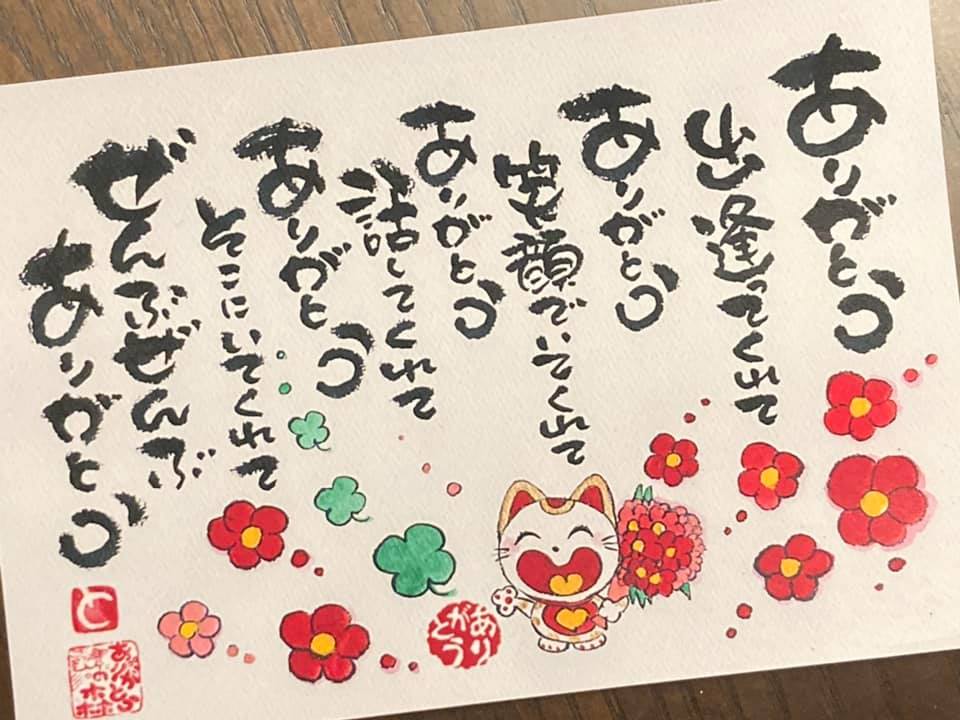 ありがとう
出逢ってくれて
ありがとう
笑顔でいてくれて
ありがとう
話してくれて
ありがとう
そこにいてくれて
ぜんぶぜんぶ
ありがとう
と
ありがとう